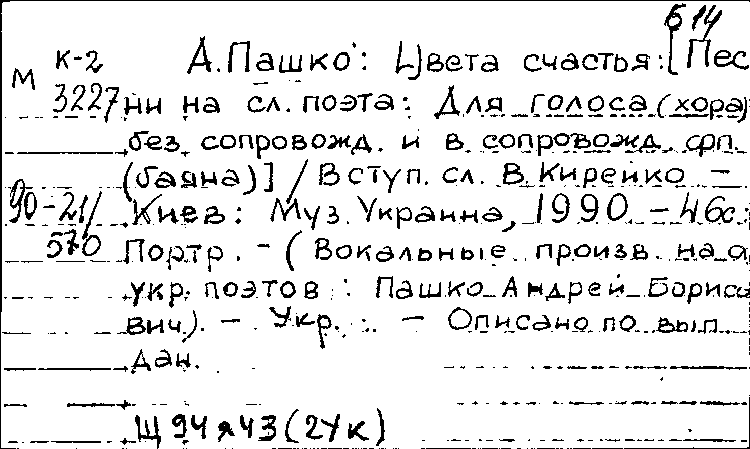 Б 14
М К-2 А.Пашко: Цвета счастья: [Пес
3227 ни на сл. поэта: Для голоса (хора)
без сопровожд. и в сопровожд. фп.
(баяна)] / Вступ. сл. В. Кирейко –
90-21/ Киев: Муз. Украина, 1990. – 46с.:
570 Портр. – (Вокальные произв. на сл
укр. поэтов : Пашко Андрей Борисо
вич). – Укр. : . – Описано по вып.
дан.
Щ 94 я 43 (2Ук)